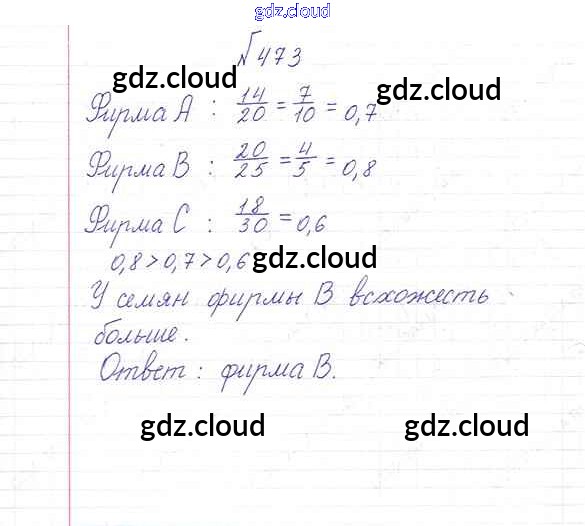 gdz.cloud
№473
gdz.cloud gdz.cloud
Фирма А : 14/20 = 7/10 = 0,7
Фирма В : 20/25 = 4/5 = 0,8
Фирма С : 18/30 = 0,6
0,8 > 0,7 > 0,6 gdz.cloud
У семян фирмы В всхожесть
больше.
Ответ : фирма В.
gdz.cloud gdz.cloud